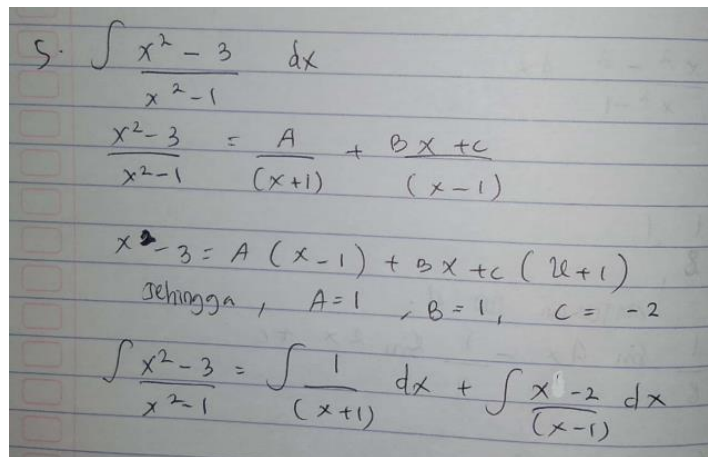 5. ∫ x² - 3 / x² - 1 dx
x² - 3 / x² - 1 = A / (x+1) + Bx + c / (x - 1)
x² - 3 = A (x - 1) + Bx + c (x + 1)
sehingga, A = 1, B = 1, C = -2
∫ x² - 3 / x² - 1 = ∫ 1 / (x+1) dx + ∫ x - 2 / (x - 1) dx